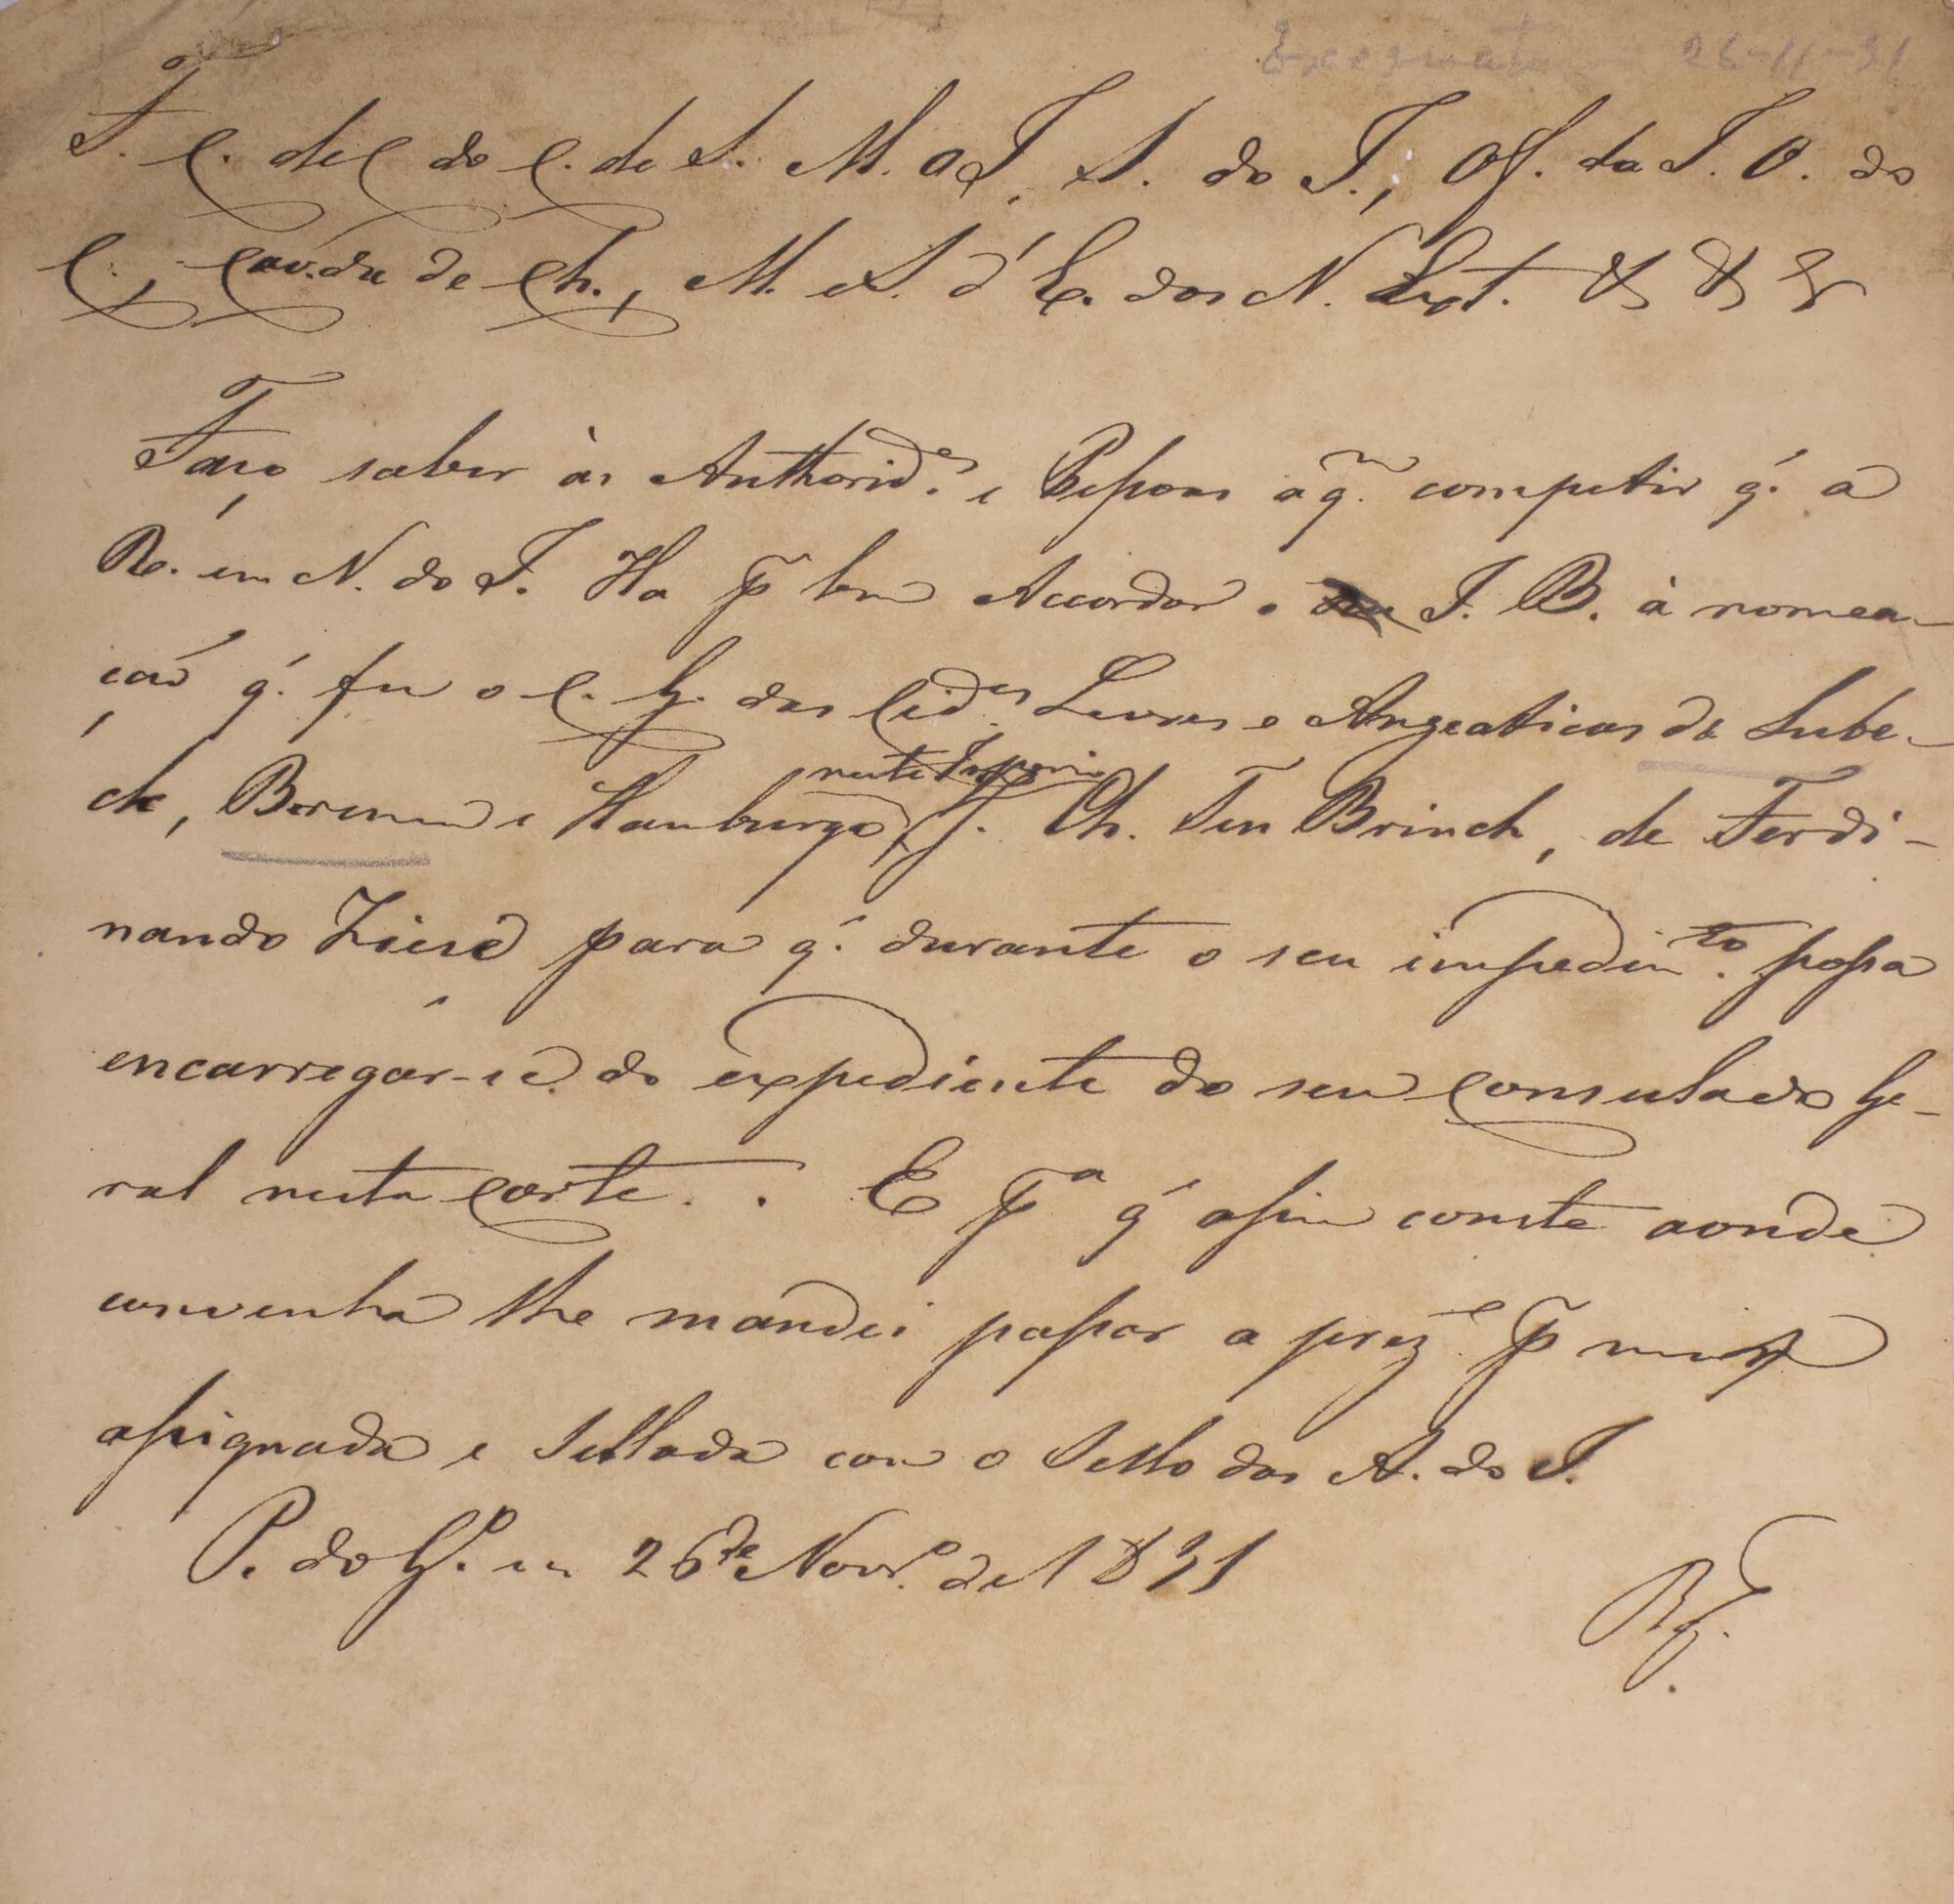 Exequatur 26-11-31
F. C. de C do C. de S. M. o I. S. do I., Of. da I. O. do
C., Cav. da de Ch., M. e S. d'E. dos N. Ext. & & &
Faço saber ás Authorid.es e Pessoas a q.m competir q.' a
R. em N. do I. Ha p bem Accordar o seu I. B. á nomea-
ção q.' fez o C. G. das Cid.es Livres e Anzeaticas de Lube-
ck, Bremen e Hamburgo neste Imperio J. Ch. Ten Brinck, de Ferdi-
nando para q.' durante o seu impedim.to possa
encarregar-se do expediente do seu Consulado Ge-
ral nesta Corte. E p.a q' assim conste aonde
convenha lhe mandei passar a prez.e p mim
assignada e Sellada com o Sello das A. do I.
P. do G.o em 26 de Nov.o de 1831